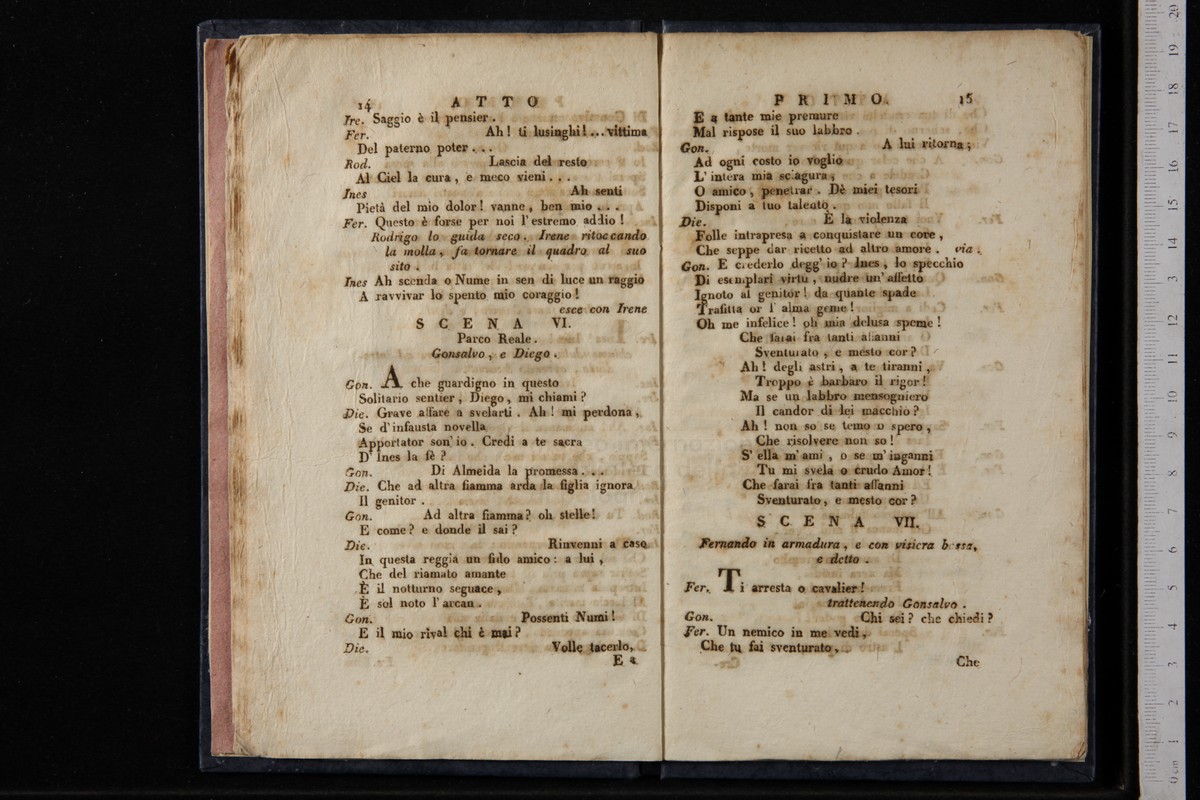 14 ATTO
Ire. Saggio è il pensier.
Fer. Ah! ti lusinghi!... vittima
Del paterno poter...
Rod. Lascia del resto
Al Ciel la cura, e meco vieni...
Ines Ah senti
Pietà del mio dolor! vanne, ben mio...
Fer. Questo è forse per noi l'estremo addio!
Rodrigo lo guida seco. Irene ritoccando
la molla, fa tornare il quadro al suo
sito.
Ines Ah scenda o Nume in sen di luce un raggio
A ravvivar lo spento mio coraggio!
esce con Irene
SCENA VI.
Parco Reale.
Gonsalvo, e Diego.
Gon. A che guardigno in questo
Solitario sentier, Diego, mi chiami?
Die. Grave affare a svelarti. Ah! mi perdona,
Se d'infausta novella
Apportator son' io. Credi a te sacra
D' Ines la fè?
Gon. Di Almeida la promessa...
Die. Che ad altra fiamma arda la figlia ignora
Il genitor.
Gon. Ad altra fiamma? oh stelle!
E come? e donde il sai?
Die. Rinvenni a caso
In questa reggia un fido amico: a lui,
Che del riamato amante
È il notturno seguace,
È sol noto l'arcan.
Gon. Possenti Numi!
E il mio rival chi è mai?
Die. Volle tacerlo,
E a
PRIMO. 15
E a tante mie premure
Mal rispose il suo labbro.
Gon. A lui ritorna;
Ad ogni costo io voglio
L'intera mia sciagura,
O amico, penetrar. Dè miei tesori
Disponi a tuo talento.
Die. È la violenza
Folle intrapresa a conquistare un core,
Che seppe dar ricetto ad altro amore. via.
Gon. E crederlo degg' io? Ines, lo specchio
Di esemplari virtù, nudre un' affetto
Ignoto al genitor! da quante spade
Trafitta or l' alma geme!
Oh me infelice! oh mia delusa speme!
Che farai fra tanti affanni
Sventurato, e mesto cor?
Ah! degli astri, a te tiranni,
Troppo è barbaro il rigor!
Ma se un labbro mensogniero
Il candor di lei macchiò?
Ah! non so se temo o spero,
Che risolvere non so!
S' ella m' ami, o se m' inganni
Tu mi svela o crudo Amor!
Che farai fra tanti affanni
Sventurato, e mesto cor?
SCENA VII.
Fernando in armadura, e con visiera bassa,
e detto.
Fer. Ti arresta o cavalier!
trattenendo Gonsalvo.
Gon. Chi sei? che chiedi?
Fer. Un nemico in me vedi,
Che tu fai sventurato,
Che